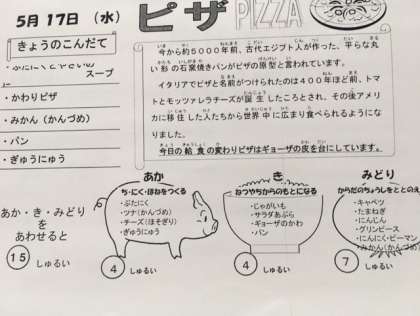 5月17日（水）
ピザ
PIZZA
きょうのこんだて
スープ
・かわりピザ
・みかん（かんづめ）
・パン
・ぎゅうにゅう
今から約５０００年前、古代エジプト人が作った、平らな丸
い形の石窯焼きパンがピザの原型と言われています。
イタリアでピザと名前がつけられたのは４００年ほど前、トマ
トとモッツァレラチーズが誕生したころとされ、その後アメリ
カに移住した人たちから世界中に広まり食べられるようにな
りました。
今日の給食の変わりピザはギョーザの皮を台にしています。
あか・き・みどり
を
あわせると
15 しゅるい
あか
ち・にく・ほねをつくる
・ぶたにく
・ツナ（かんづめ）
・チーズ（ほそぎり）
・ぎゅうにゅう
4 しゅるい
き
ねつやちからのもとになる
・じゃがいも
・サラダあぶら
・ギョーザのかわ
・パン
4 しゅるい
みどり
からだのちょうしをととのえ
・キャベツ
・たまねぎ
・にんじん
・グリンピース
・にんにく・ピーマン
・みかん（かんづめ）
7 しゅるい